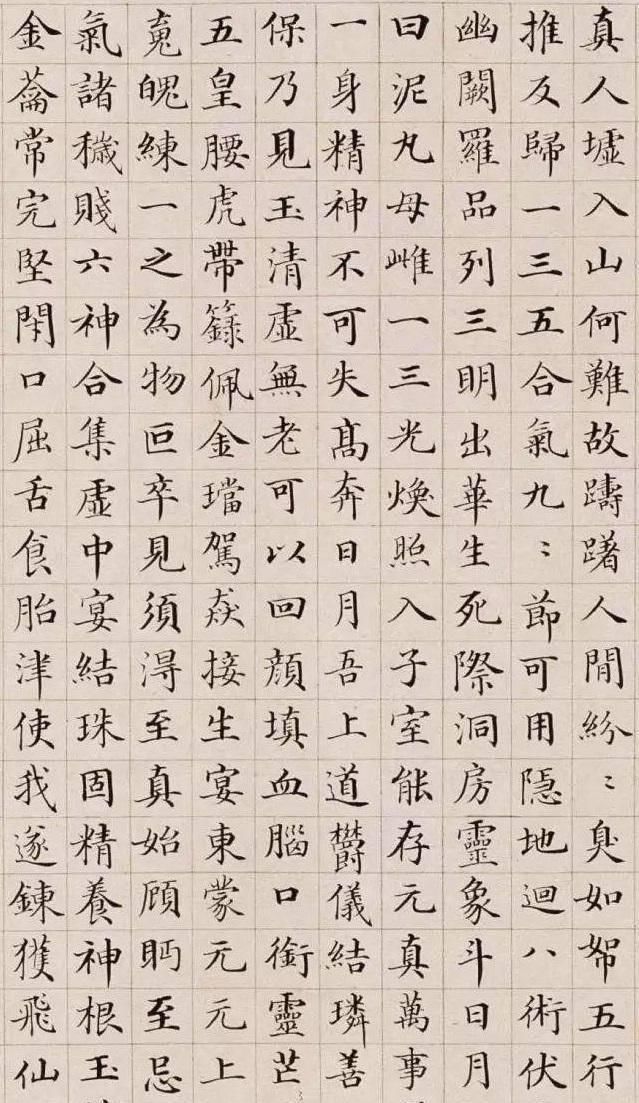 真人墟入山何難故躊躇人間紛〻臭如帤五行
推反歸一三五合氣九〻節可用隱地迴八術伏
幽闕羅品列三明出華生死際洞房靈象斗日月
曰泥丸母雌一三光煥照入子室能存元真萬事
一身精神不可失高奔日月吾上道鬱儀結璘善
保乃見玉清虛無老可以回顏填血腦口銜靈芒
五皇腰虎帶籙佩金璫駕焱接生宴東蒙元元上
魂魄練一之為物叵卒見須得至真始顧眄至忌
氣諸穢賤六神合集虛中宴結珠固精養神根玉
金籥常完堅閇口屈舌食胎津使我遂鍊獲飛仙